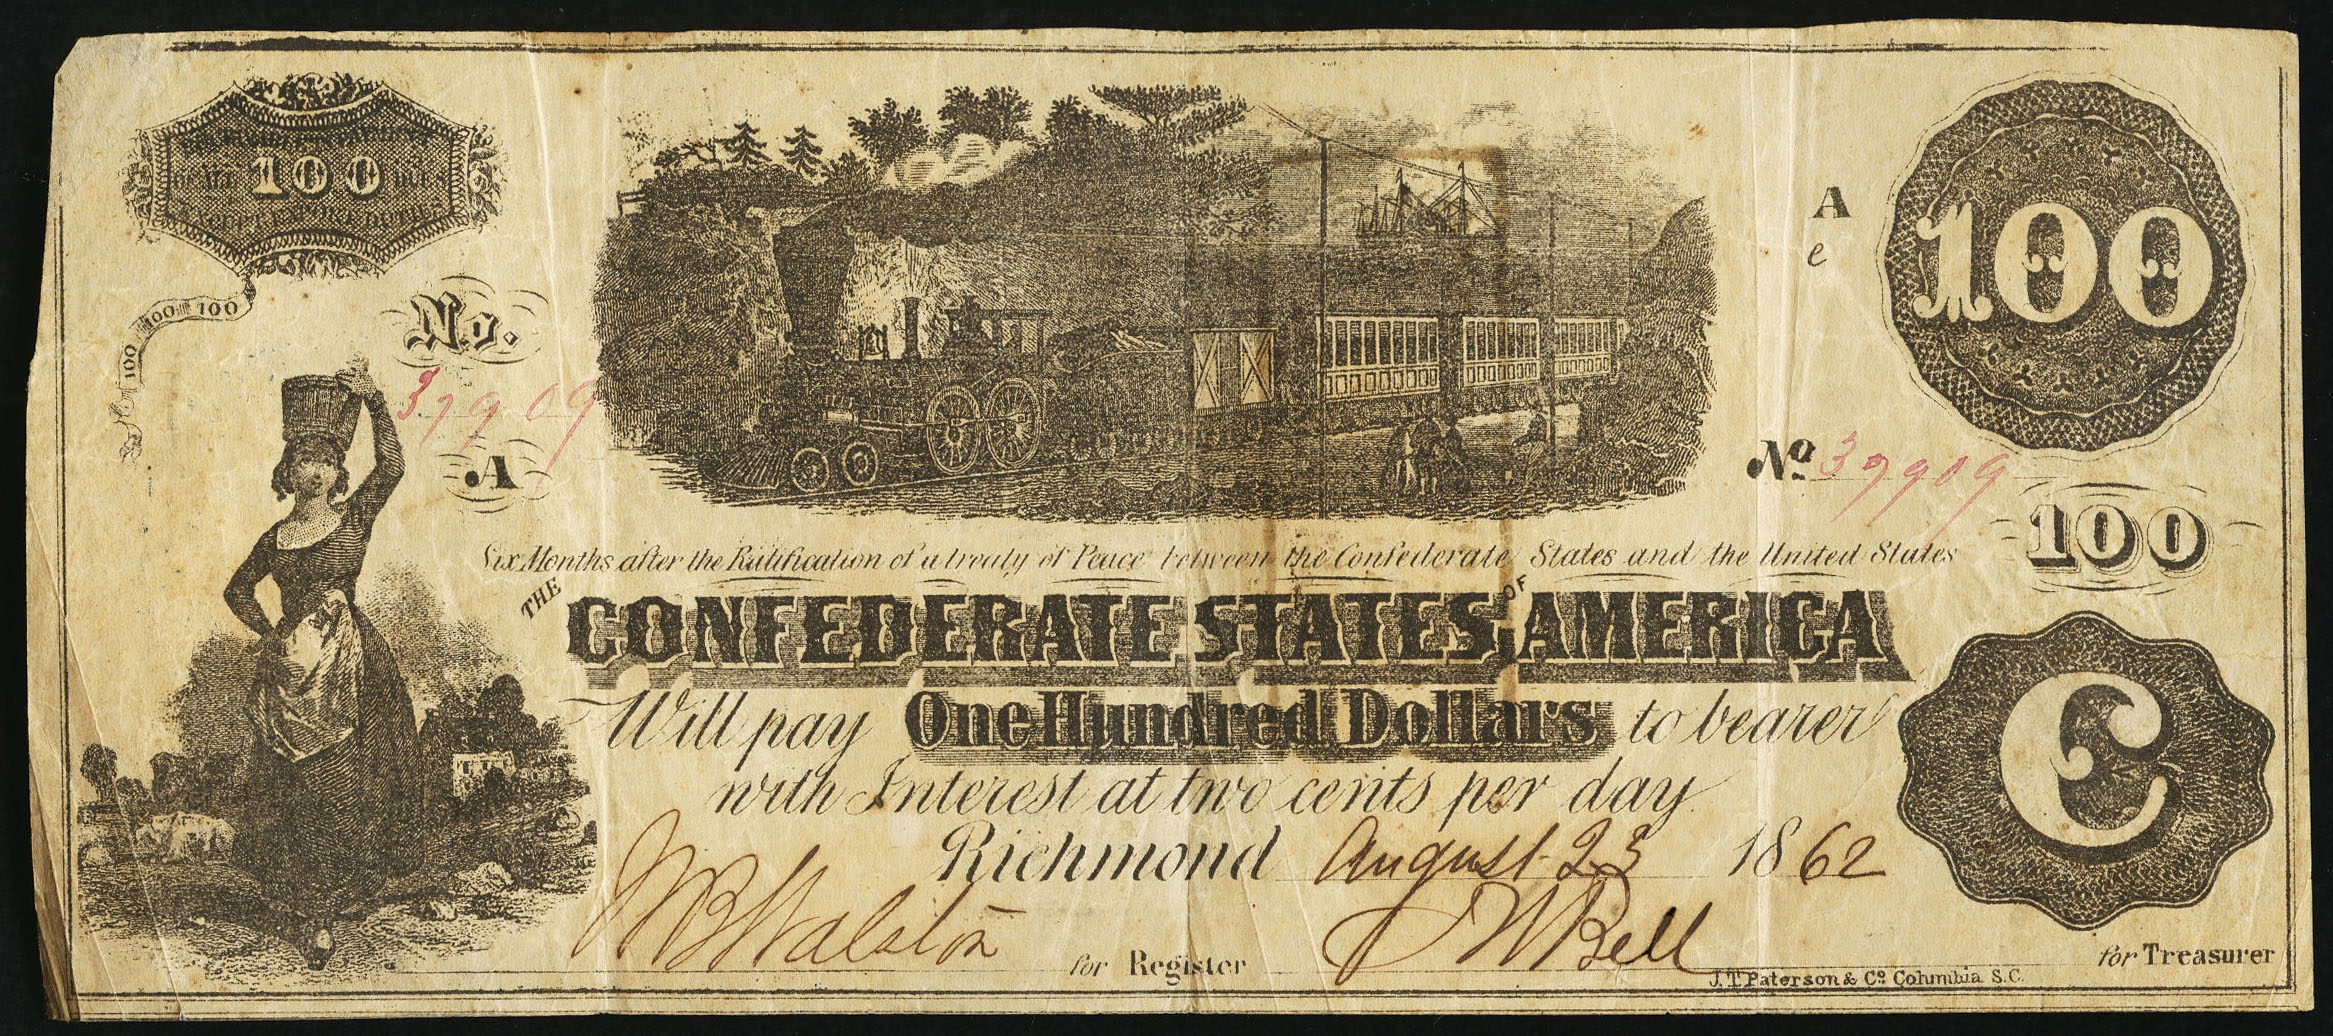 100
100 100 100
No.
37909
A
A
e
100
No. 37909
100
Six Months after the Ratification of a treaty of Peace between the Confederate States and the United States
THE CONFEDERATE STATES OF AMERICA
Will pay One Hundred Dollars to bearer
with Interest at two cents per day.
Richmond August 23 1862
C
for Register
Bell
for Treasurer
J.T. Paterson & Co. Columbia S.C.